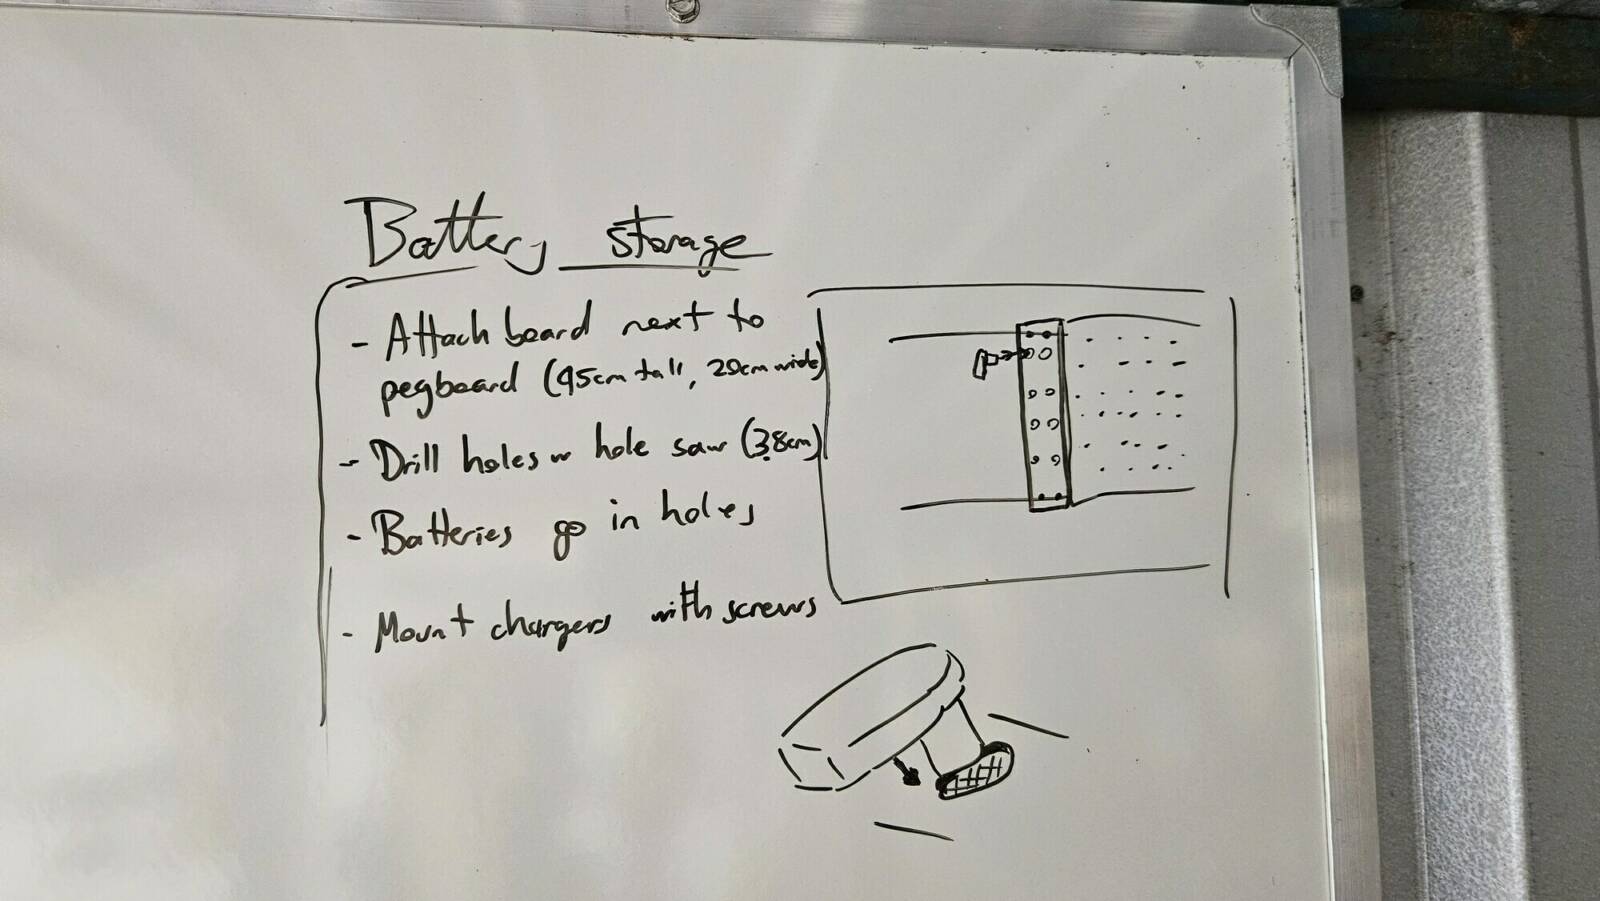 Battery storage
- Attach board next to
pegboard (95cm tall, 20cm wide)
- Drill holes w hole saw (3.8cm)
- Batteries go in holes
- Mount chargers with screws